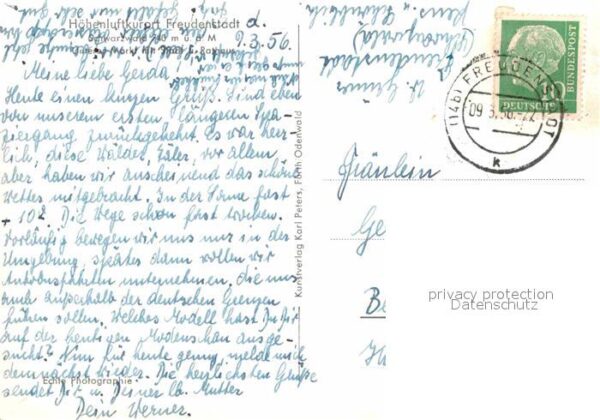 Höhenluftkurort Freudenstadt
Schwarzwald 740 m ü. d. M
d.
9.3.56.
Meine liebe Gerda,
Heute einen kurzen Gruß. Sind eben
von unserem ersten, längeren Spa-
ziergang zurückgekehrt. Es war herr-
lich, diese Wälder, Täler, vor allem
aber haben wir anscheinend das schöne
Wetter mitgebracht. In der Sonne fast
+ 10°. Die Wege schon fast trocken.
Vorläufig bewegen wir uns nur in der
Umgebung, später dann wollen wir
Autobusfahrten unternehmen, die uns
auch außerhalb der deutschen Grenzen
führen sollen. Welches Modell hast Du Dir
auf der heutigen Modenschau ausge-
sucht? Nun für heute genug, melde mich
demnächst wieder. Die herzlichsten Grüße
sendet Dir u. Deiner lb. Mutter
Dein Werner.
Echte Photographie
Kunstverlag Karl Peters, Fürth Odenwald
Freudenstadt
(Schwarzwald)
(14b) FREUDENSTADT
09.3.56.-22
k
DEUTSCHE
BUNDESPOST
10
Fräulein
Ge
B
privacy protection
Datenschutz